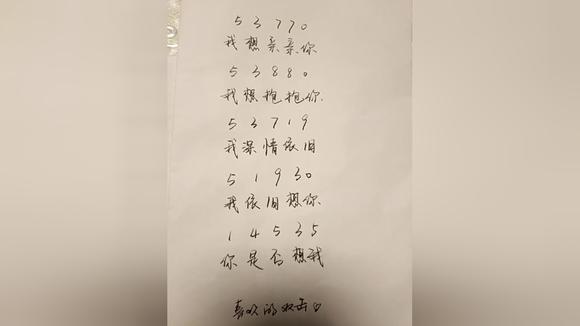 53770
我想亲亲你
53880
我想抱抱你.
53719
我深情依旧
51930
我依旧想你.
14535
你是否想我
喜欢的双击